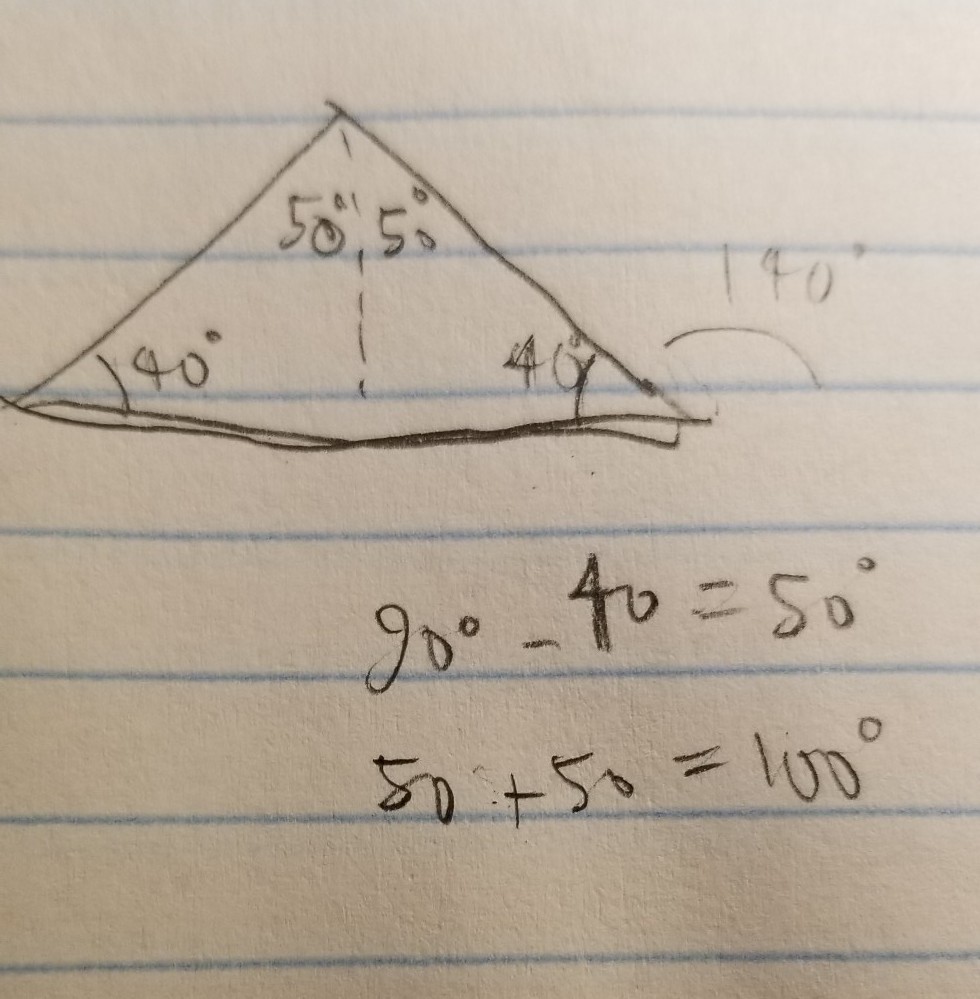 50° 50°
140°
40° 40°
90° - 40 = 50°
50 + 50 = 100°